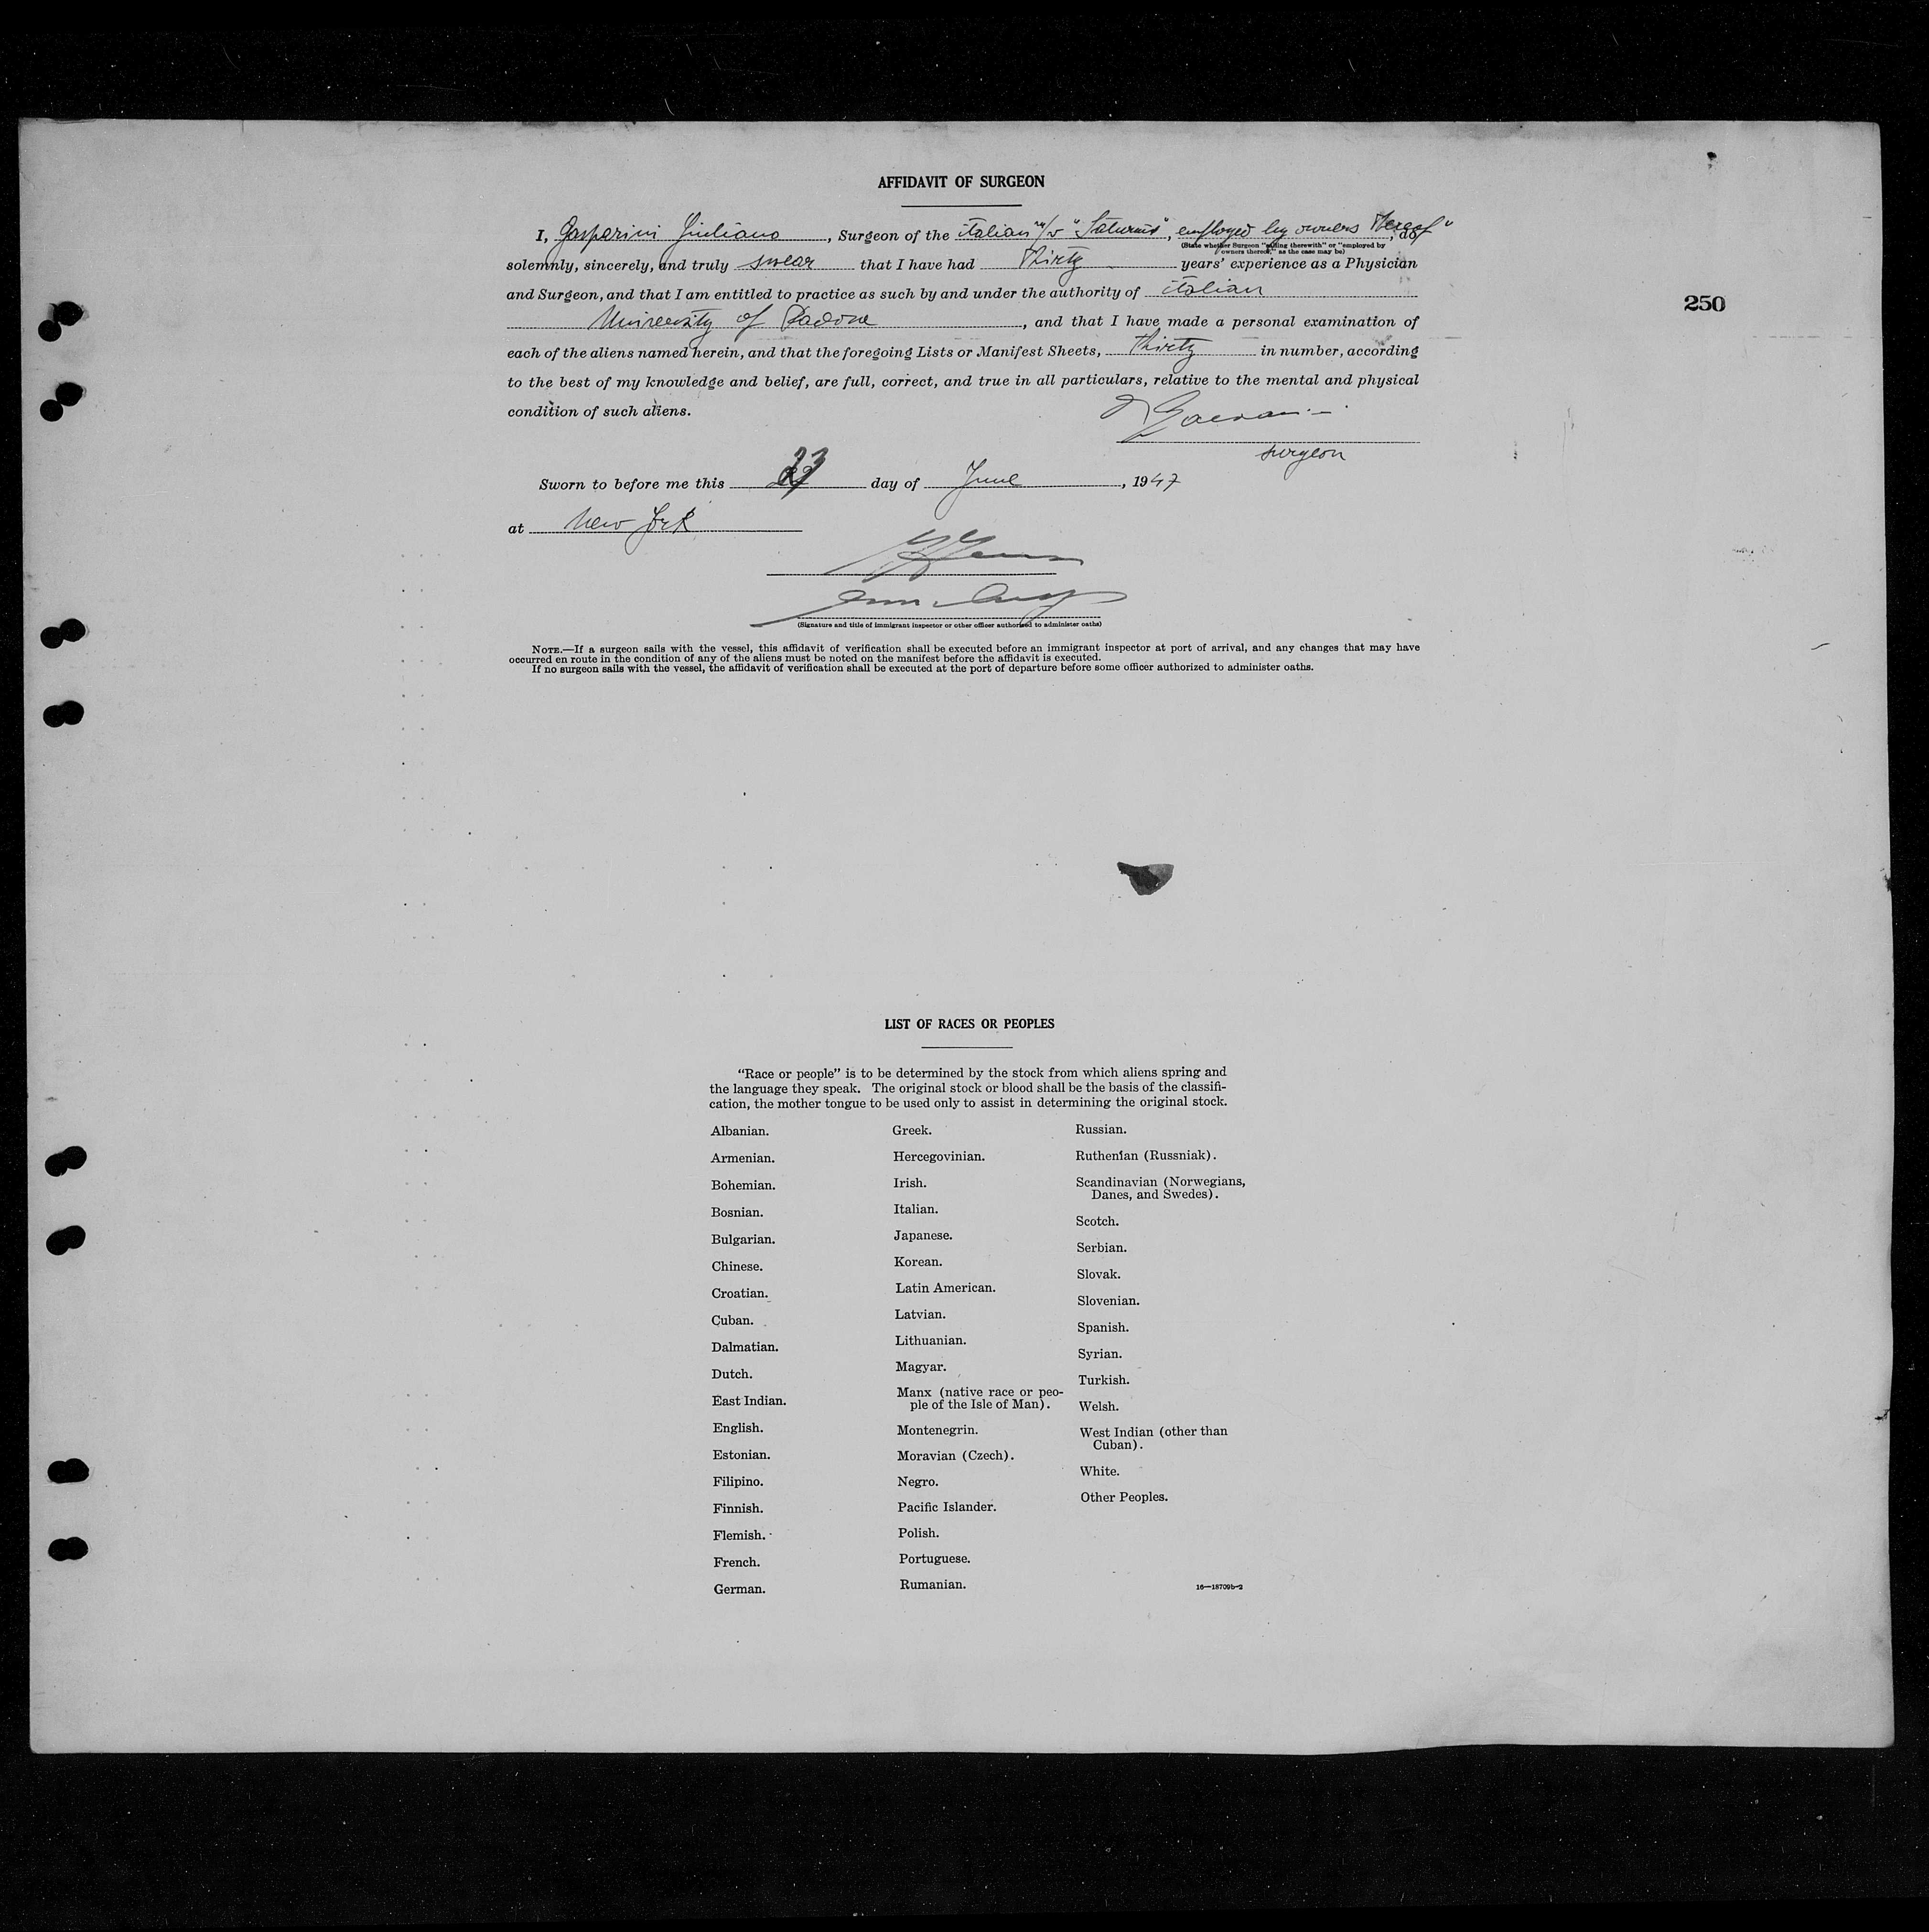 AFFIDAVIT OF SURGEON
I, Gasparini Giuliano, Surgeon of the italian m/v "Saturnia", employed by owners thereof", do
(State whether Surgeon "sailing therewith" or "employed by owners thereof," as the case may be)
solemnly, sincerely, and truly swear that I have had Thirty years' experience as a Physician
and Surgeon, and that I am entitled to practice as such by and under the authority of italian
University of Padova, and that I have made a personal examination of
250
each of the aliens named herein, and that the foregoing Lists or Manifest Sheets, thirty in number, according
to the best of my knowledge and belief, are full, correct, and true in all particulars, relative to the mental and physical
condition of such aliens.
surgeon
Sworn to before me this 23 day of June, 1947
at New York
(Signature and title of immigrant inspector or other officer authorized to administer oaths)
NOTE.—If a surgeon sails with the vessel, this affidavit of verification shall be executed before an immigrant inspector at port of arrival, and any changes that may have
occurred en route in the condition of any of the aliens must be noted on the manifest before the affidavit is executed.
If no surgeon sails with the vessel, the affidavit of verification shall be executed at the port of departure before some officer authorized to administer oaths.
LIST OF RACES OR PEOPLES
"Race or people" is to be determined by the stock from which aliens spring and
the language they speak. The original stock or blood shall be the basis of the classifi-
cation, the mother tongue to be used only to assist in determining the original stock.
Albanian.
Armenian.
Bohemian.
Bosnian.
Bulgarian.
Chinese.
Croatian.
Cuban.
Dalmatian.
Dutch.
East Indian.
English.
Estonian.
Filipino.
Finnish.
Flemish.
French.
German.
Greek.
Hercegovinian.
Irish.
Italian.
Japanese.
Korean.
Latin American.
Latvian.
Lithuanian.
Magyar.
Manx (native race or peo-
ple of the Isle of Man).
Montenegrin.
Moravian (Czech).
Negro.
Pacific Islander.
Polish.
Portuguese.
Rumanian.
Russian.
Ruthenian (Russniak).
Scandinavian (Norwegians,
Danes, and Swedes).
Scotch.
Serbian.
Slovak.
Slovenian.
Spanish.
Syrian.
Turkish.
Welsh.
West Indian (other than
Cuban).
White.
Other Peoples.
16—18709b-2